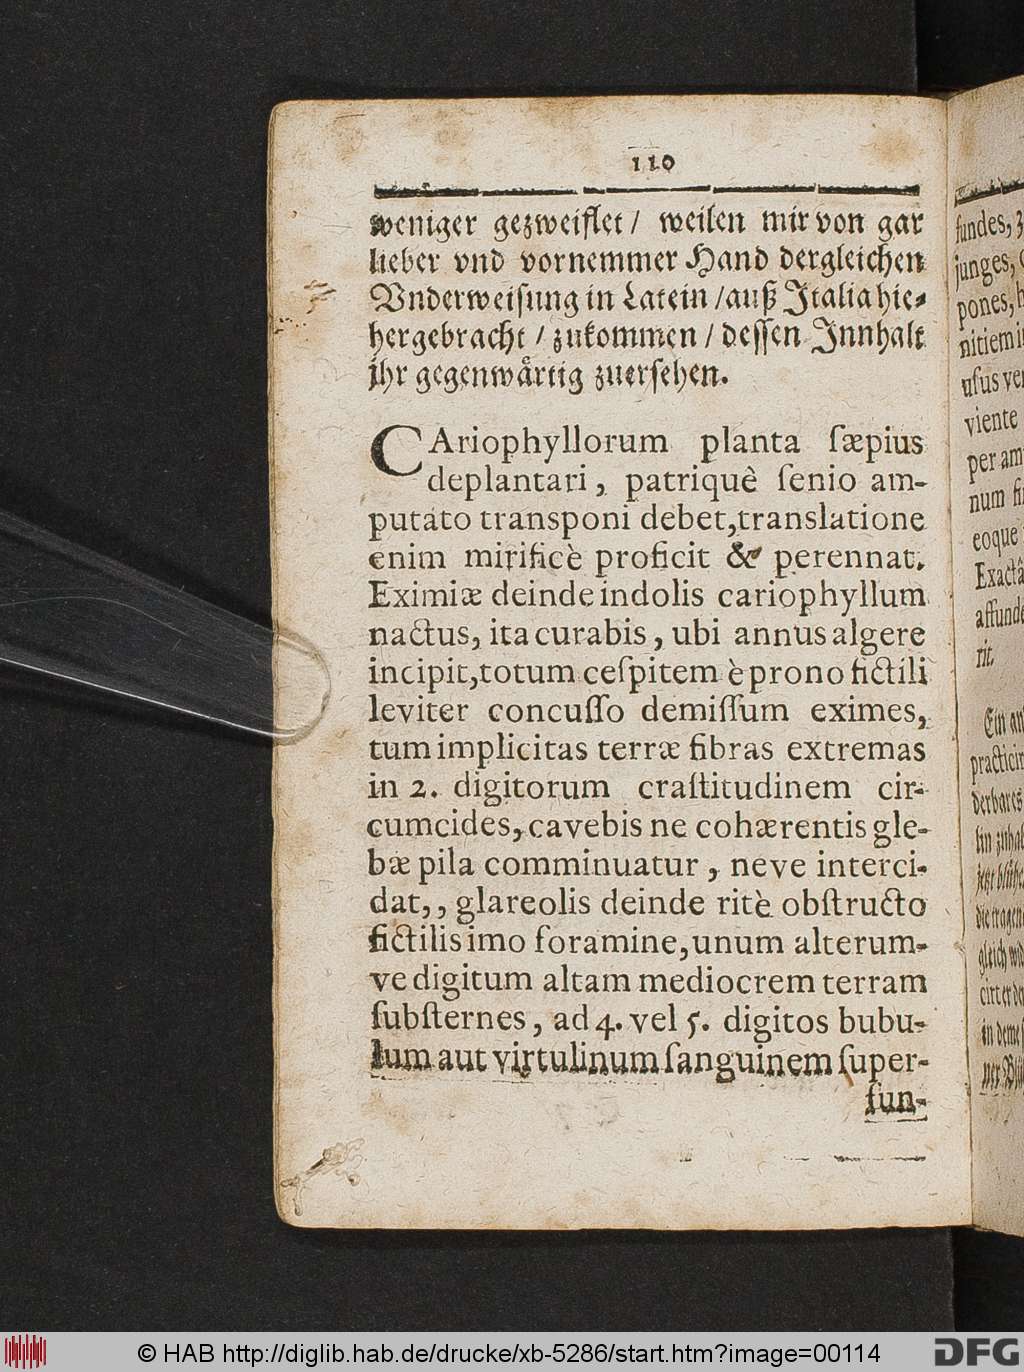 110
weniger gezweiflet / weilen mir von gar
lieber vnd vornemmer Hand dergleichen
Vnderweisung in Latein / auß Italia hie-
hergebracht / zukommen / dessen Innhalt
jhr gegenwärtig zuersehen.
CAriophyllorum planta ſæpius
deplantari, patriquè ſenio am-
putato transponi debet, translatione
enim mirificè proficit & perennat.
Eximiæ deinde indolis cariophyllum
nactus, ita curabis, ubi annus algere
incipit, totum ceſpitem è prono fictili
leviter concuſſo demiſſum eximes,
tum implicitas terræ fibras extremas
in 2. digitorum craſtitudinem cir-
cumcides, cavebis ne cohærentis gle-
bæ pila comminuatur, neve interci-
dat,, glareolis deinde ritè obſtructo
fictilis imo foramine, unum alterum-
ve digitum altam mediocrem terram
ſubſternes, ad 4. vel 5. digitos bubu-
lum aut virtulinum ſanguinem ſuper-
fun-
fundes,
junges,
pones,
nitiem
uſus
viente
per
num
eoque
affunde
rit.
Ein
© HAB http://diglib.hab.de/drucke/xb-5286/start.htm?image=00114
DFG